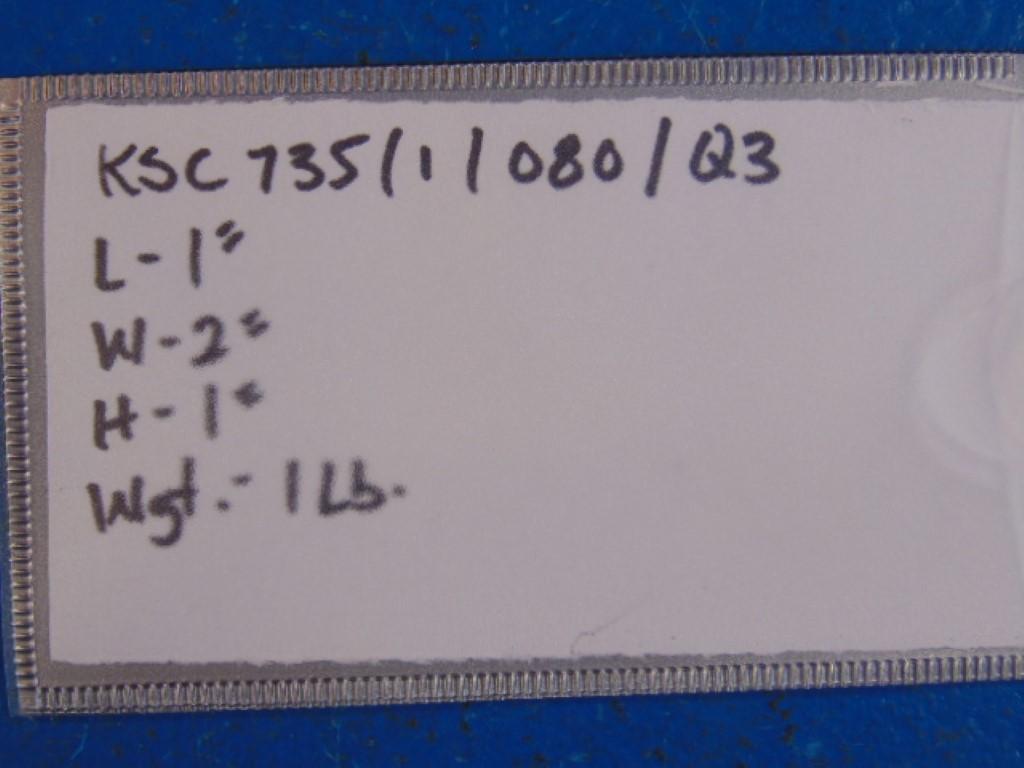 KSC 735/1/080/Q3
L-1"
W-2"
H-1"
Wgt.- 1 Lb.